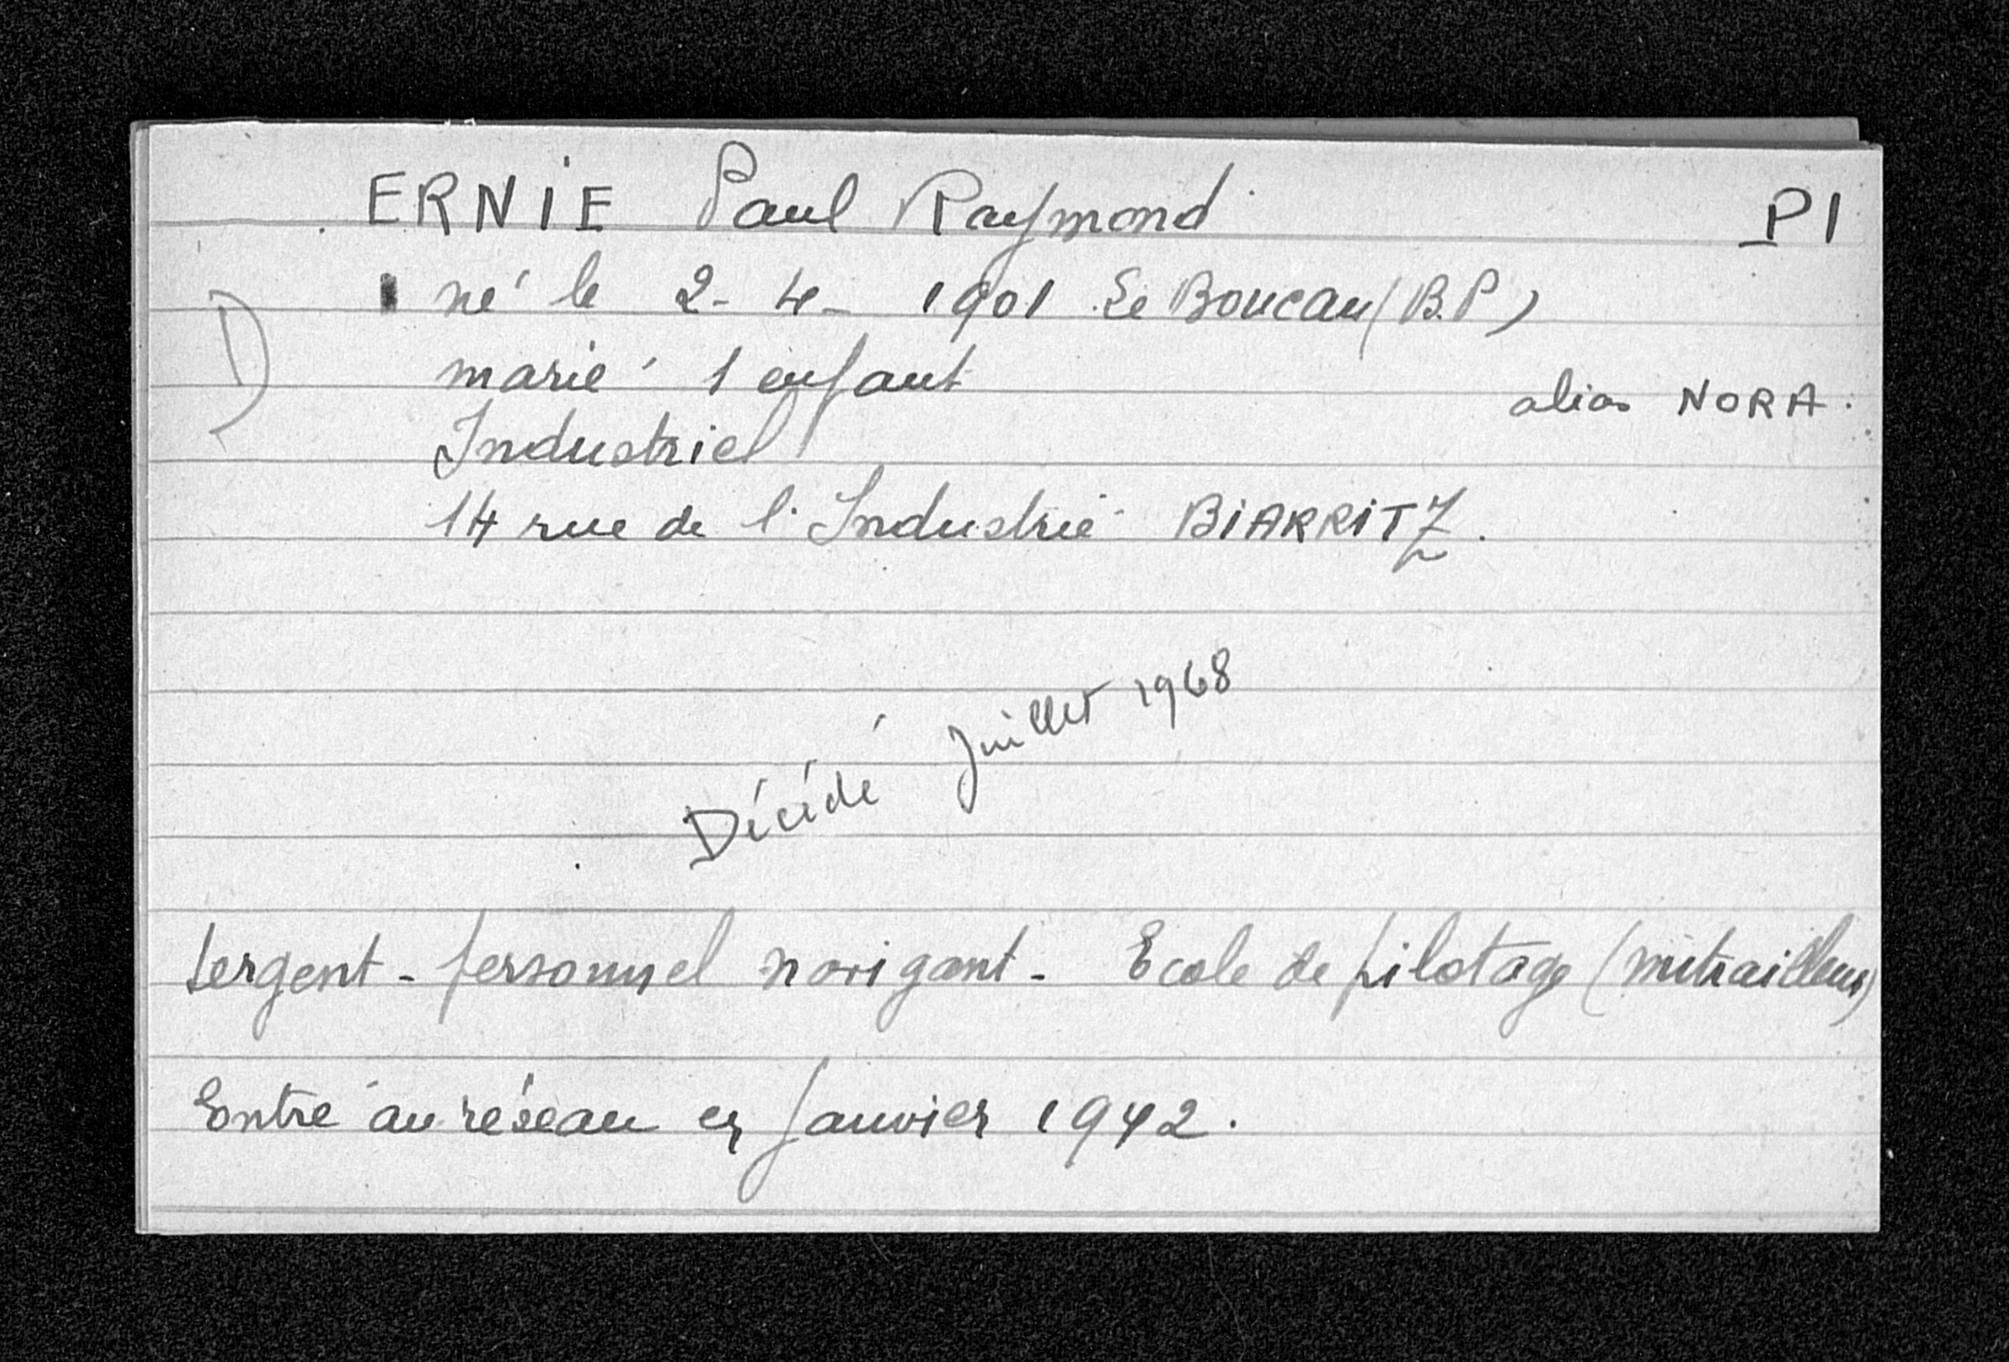 ERNIE Paul Raymond P1
né le 2-4-1901 Le Boucau (B.P)
D
marié 1 enfant
alias NORA.
Industriel
14 rue de l'Industrie BIARRITZ.
Décédé Juillet 1968
Sergent - personnel navigant - Ecole de pilotage (mitrailleur)
Entré au réseau en Janvier 1942.